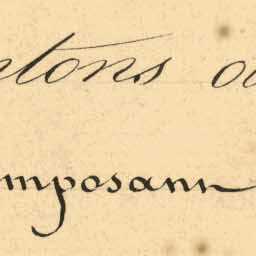 ntons ou
mposann